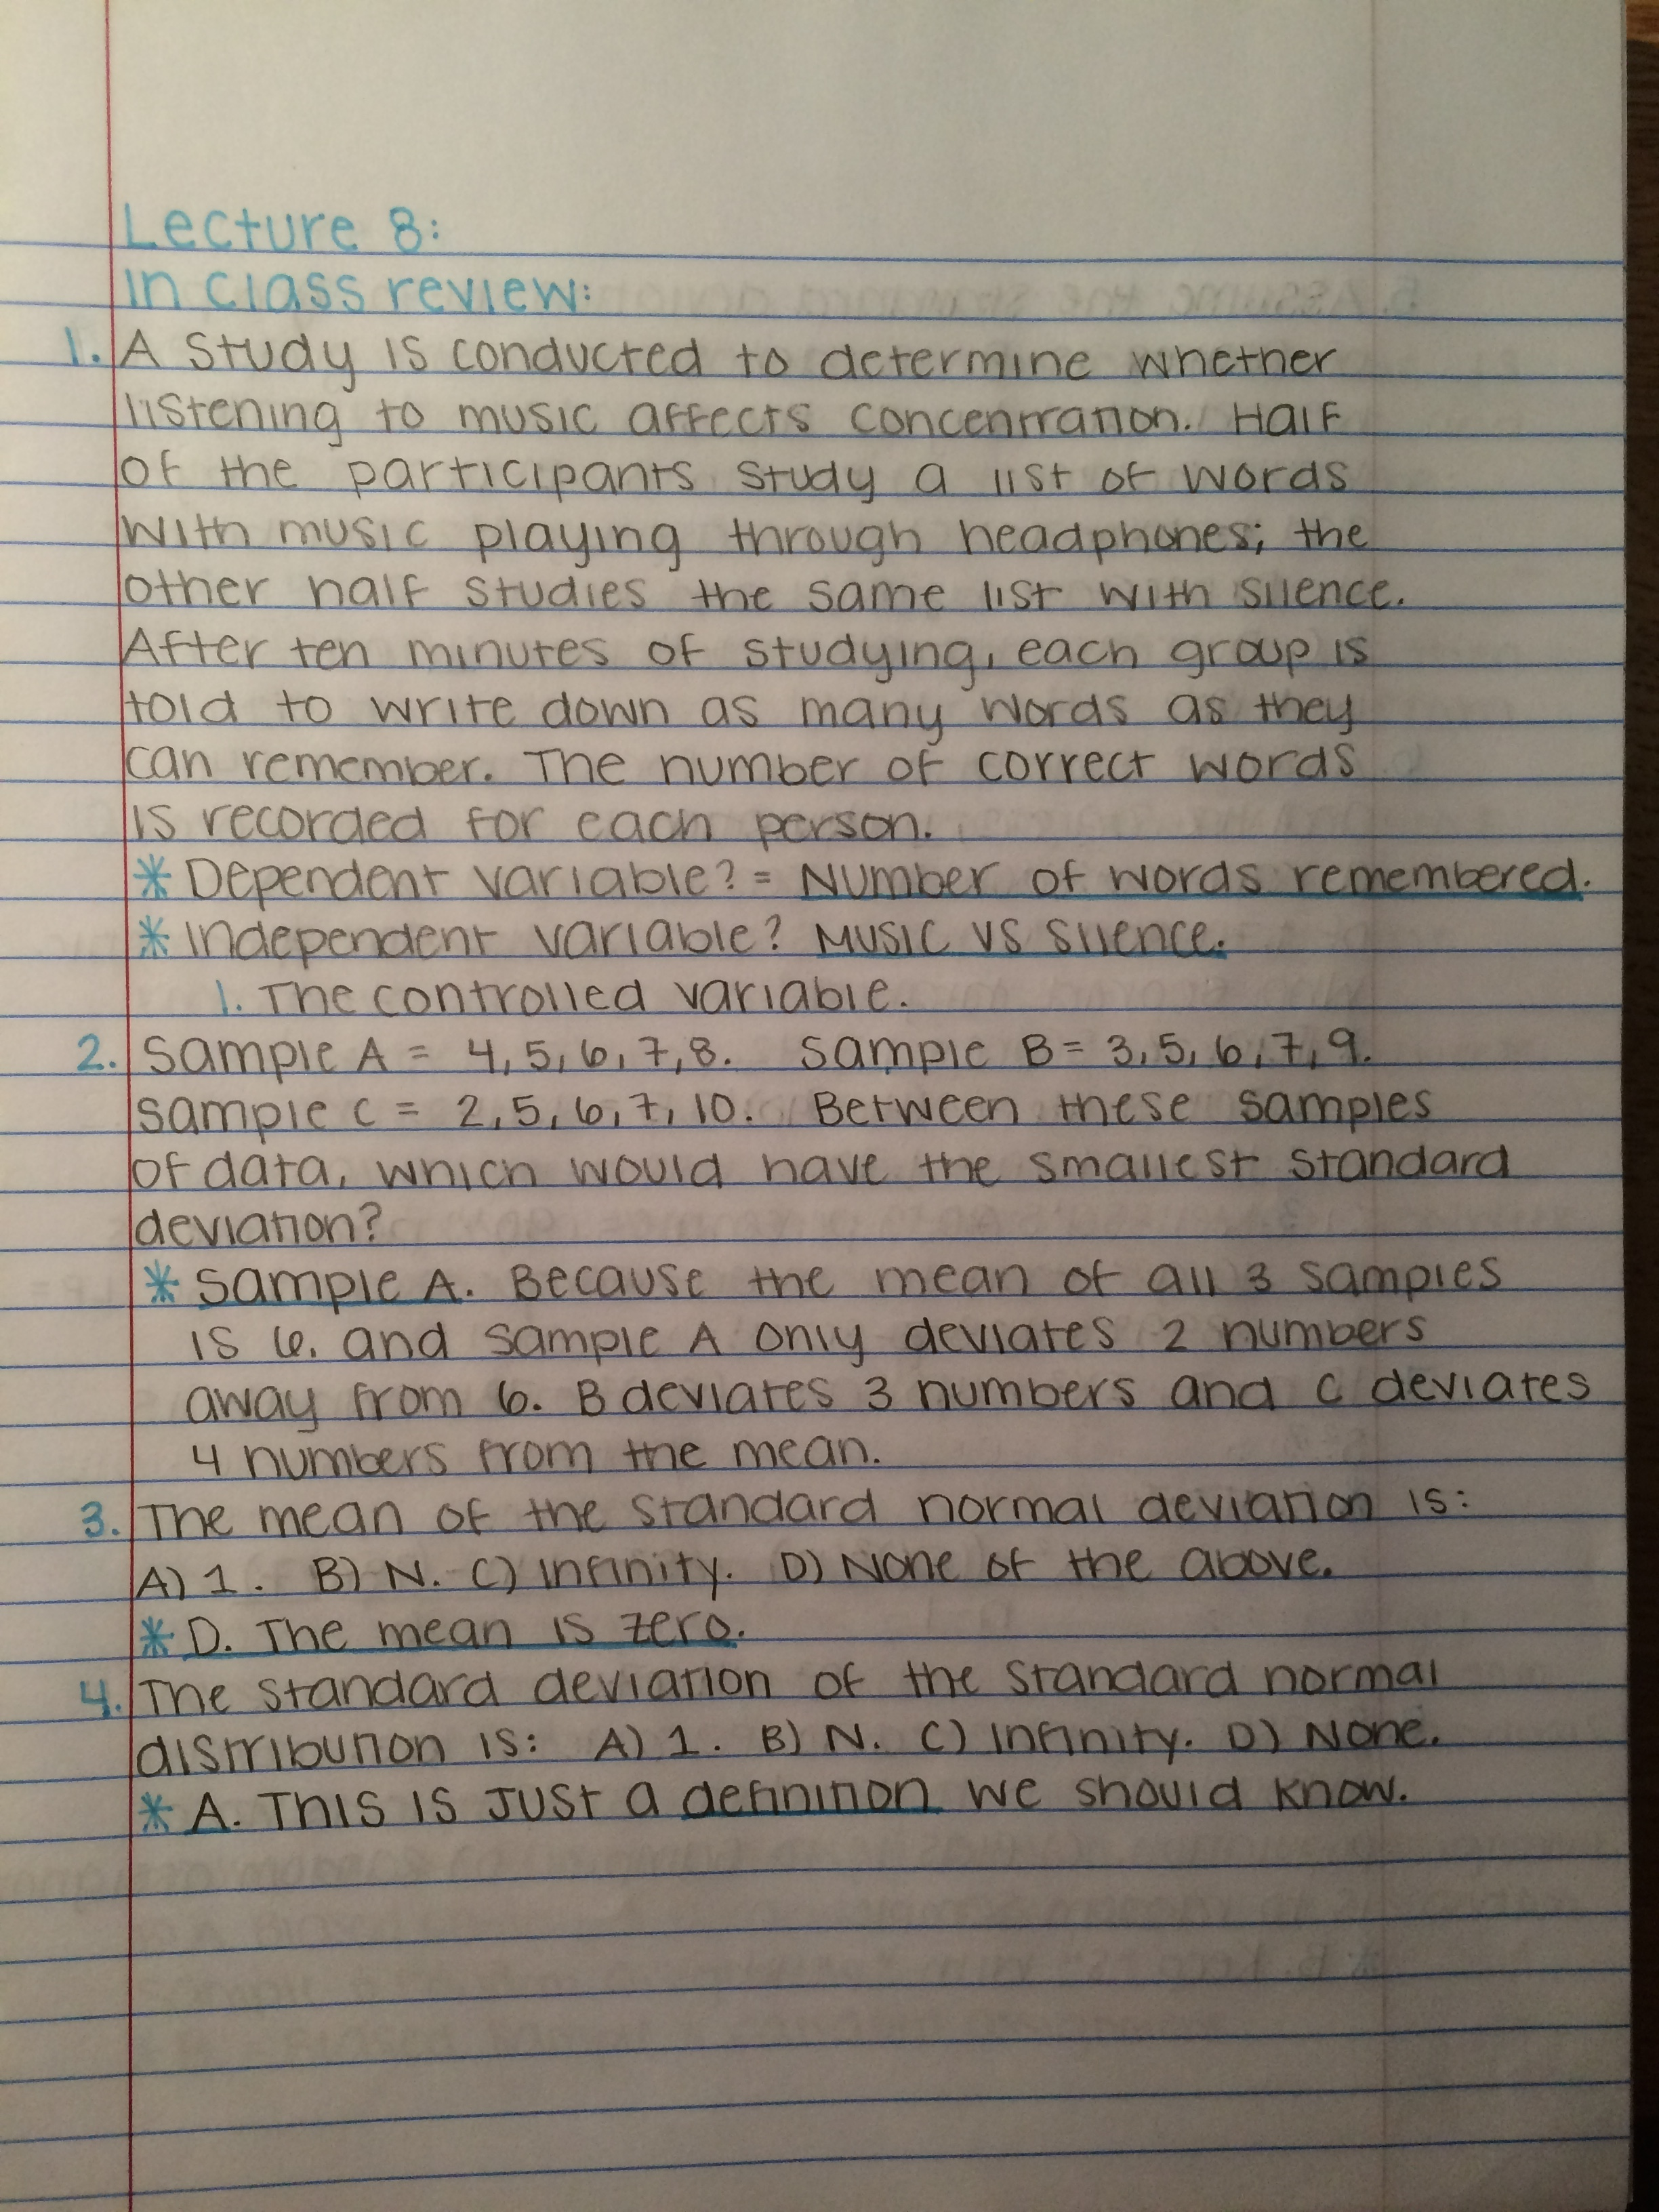 Lecture 8:
In class review:
1. A study is conducted to determine whether
listening to music affects concentration. Half
of the participants study a list of words
with music playing through headphones; the
other half studies the same list with silence.
After ten minutes of studying, each group is
told to write down as many words as they
can remember. The number of correct words
is recorded for each person.
* Dependent variable? = Number of words remembered.
* Independent variable? Music vs silence.
1. The controlled variable.
2. Sample A = 4, 5, 6, 7, 8. Sample B = 3, 5, 6, 7, 9.
Sample C = 2, 5, 6, 7, 10. Between these samples
of data, which would have the smallest standard
deviation?
* Sample A. Because the mean of all 3 samples
is 6. and sample A only deviates 2 numbers
away from 6. B deviates 3 numbers and C deviates
4 numbers from the mean.
3. The mean of the standard normal deviation is:
A) 1. B) N. C) Infinity. D) None of the above.
* D. The mean is zero.
4. The standard deviation of the standard normal
distribution is: A) 1. B) N. C) Infinity. D) None.
* A. This is just a definition we should know.